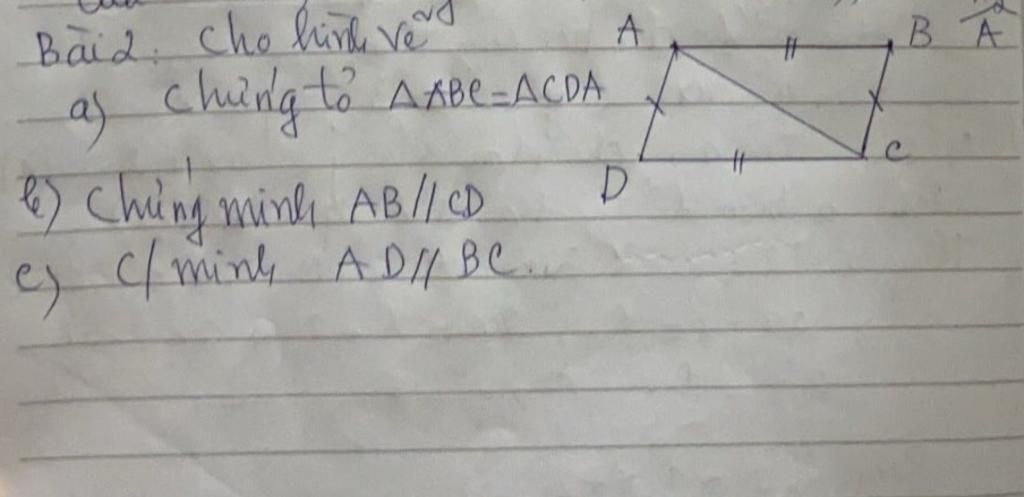 Bài 2: Cho hình vẽ
a) Chứng tỏ ΔABC = ΔCDA
b) Chứng minh AB // CD
c) C/minh AD // BC.
A B
D C
Â